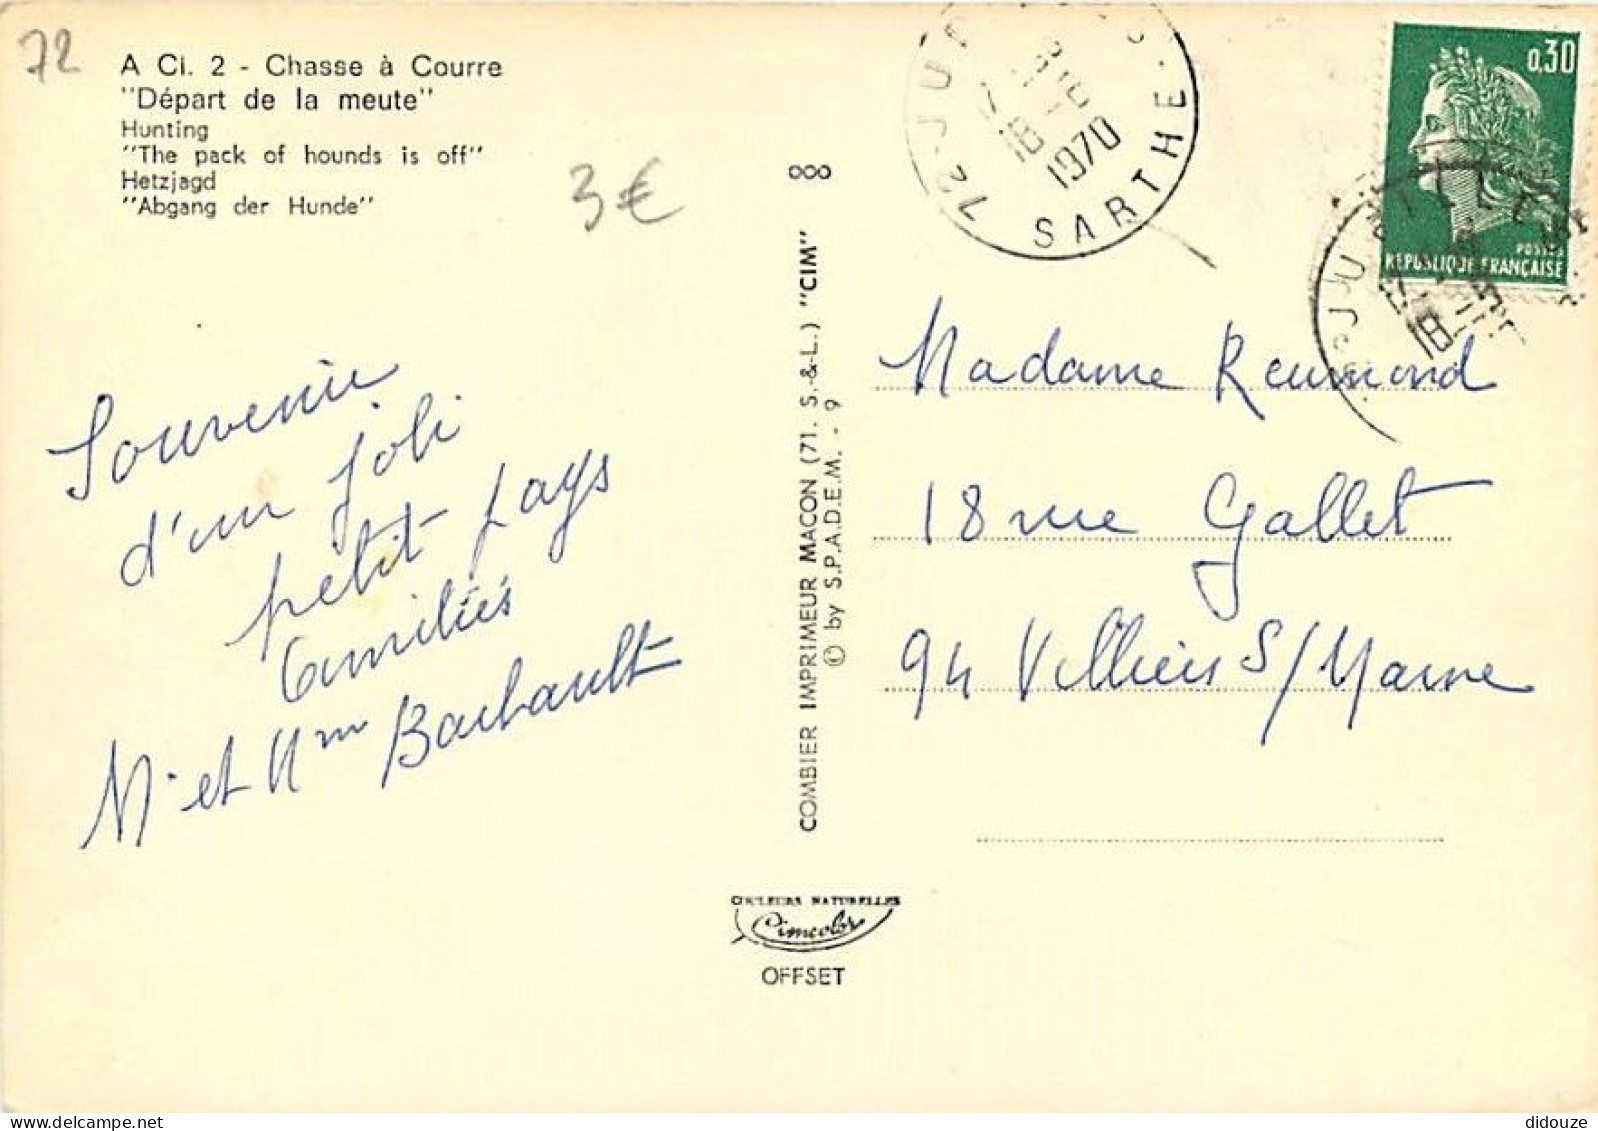 72
A Ci. 2 - Chasse à Courre
"Départ de la meute"
Hunting
"The pack of hounds is off"
Hetzjagd
"Abgang der Hunde"
3€
Souvenir
d'un joli
petit pays
Amitiés
Mr et Mme Barbault
COMBIER IMPRIMEUR MACON (71. S.-&-L.) "CIM"
© by S.P.A.D.E.M. - 9
COULEURS NATURELLES
Cimcolor
OFFSET
72-JU
18
1970
SARTHE
0,30
POSTES
REPUBLIQUE FRANÇAISE
Madame Reumond
18 rue Gallet
94 Villiers S/Marne
didouze